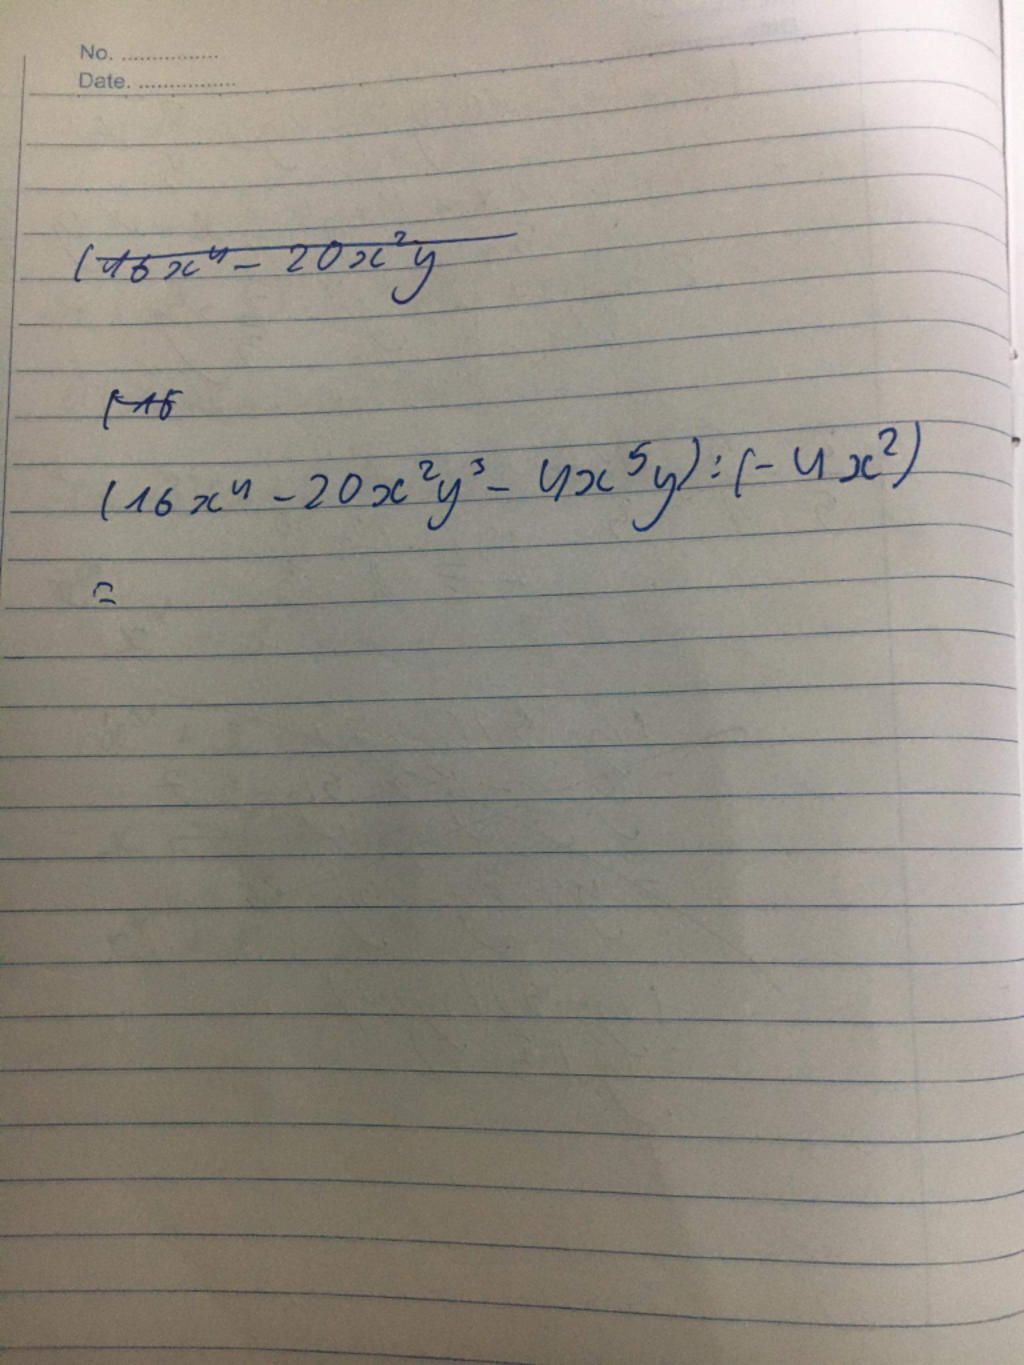 No. ................
Date. ................
(16x⁴ - 20x²y
(-16
(16x⁴ - 20x²y³ - 4x⁵y) : (-4x²)
=